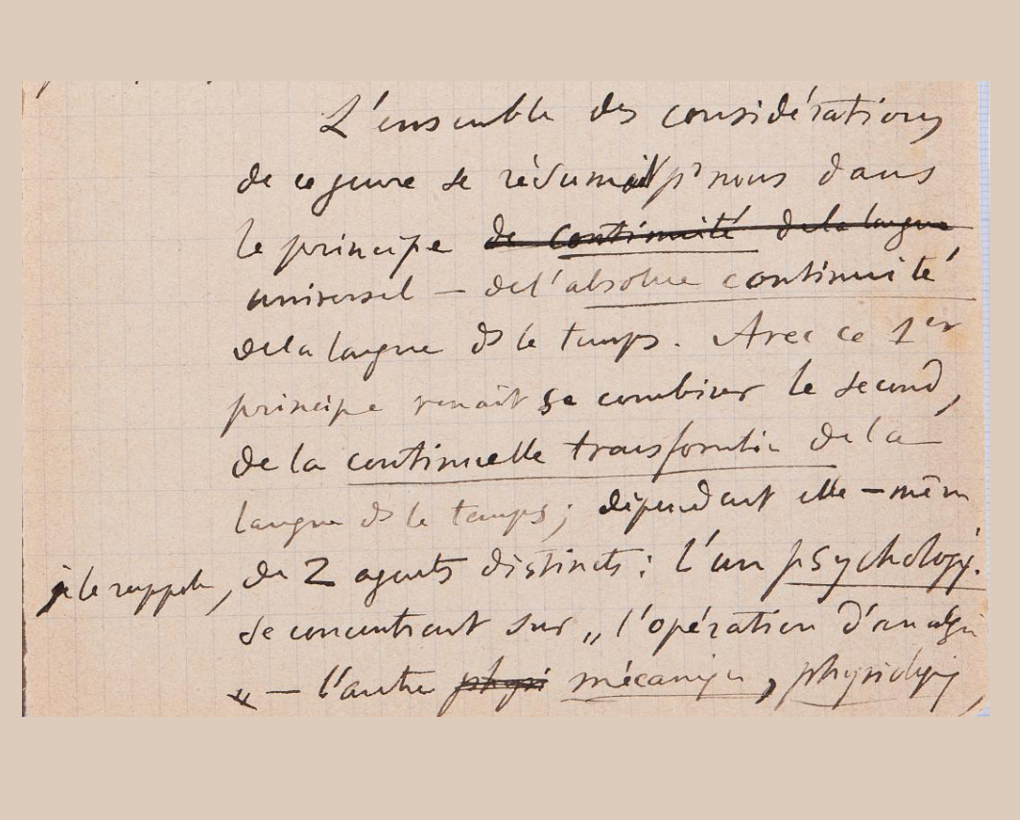 L'ensemble des considérations
de ce genre se résumait pr nous dans
le principe de continuité de la langue
universel — de l'absolue continuité
de la langue ds le temps. Avec ce 1er
principe venait se combiner le second,
de la continuelle transformation de la
langue ds le temps; dépendant elle-même
je le rappelle, de 2 agents distincts: l'un psycholog.
se concentrant sur „l'opération d'analogie
“ — l'autre physi mécanique, physiologiq,